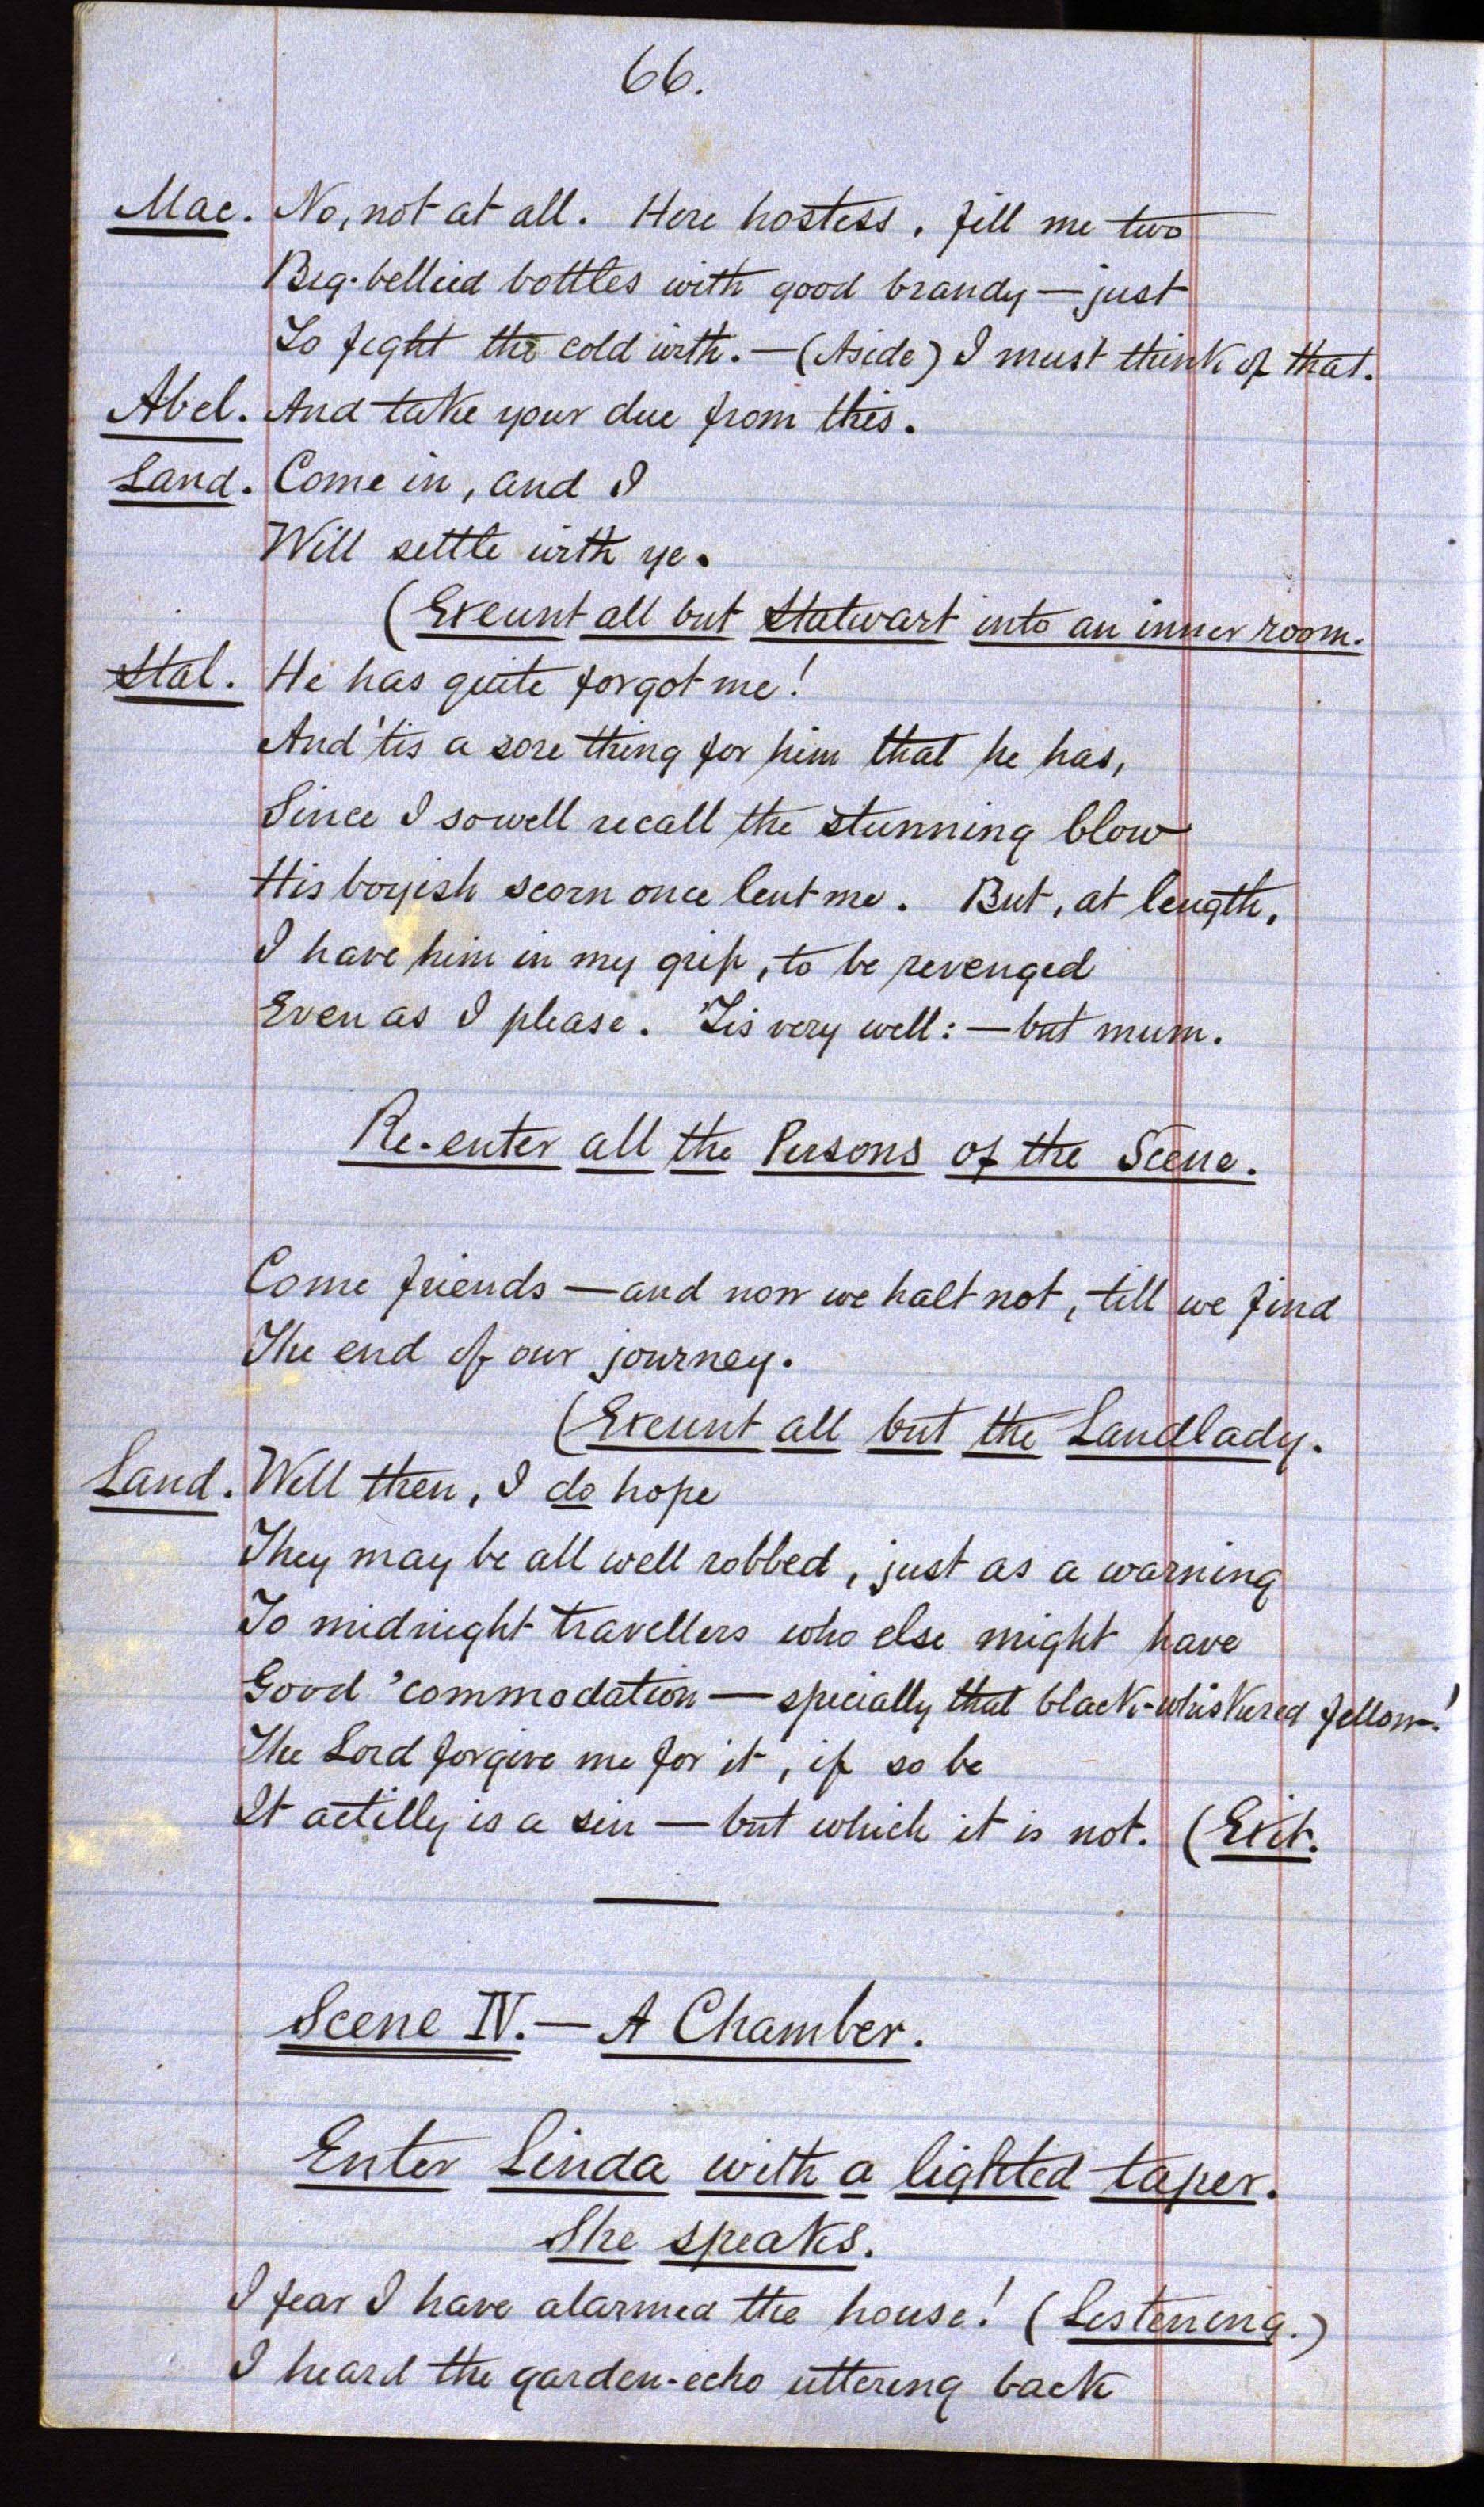 66.
Mac. No, not at all. Here hostess, fill me two
Big-bellied bottles with good brandy — just
To fight the cold with. — (Aside) I must think of that.
Abel. And take your due from this.
Land. Come in, and I
Will settle with ye.
(Exeunt all but Stalwart into an inner room.
Stal. He has quite forgot me!
And 'tis a sore thing for him that he has,
Since I so well recall the stunning blow
His boyish scorn once lent me. But, at length,
I have him in my grip, to be revenged
Even as I please. 'Tis very well: — but mum.
Re-enter all the Persons of the Scene.
Come friends — and now we halt not, till we find
The end of our journey.
(Exeunt all but the Landlady.
Land. Well then, I do hope
They may be all well robbed, just as a warning
To midnight travellers who else might have
Good 'commodation — specially that black-whiskered fellow!
The Lord forgive me for it, if so be
It actilly is a sin — but which it is not. (Exit.
Scene IV. — A Chamber.
Enter Linda with a lighted taper.
She speaks.
I fear I have alarmed the house! (Listening.)
I heard the garden-echo uttering back